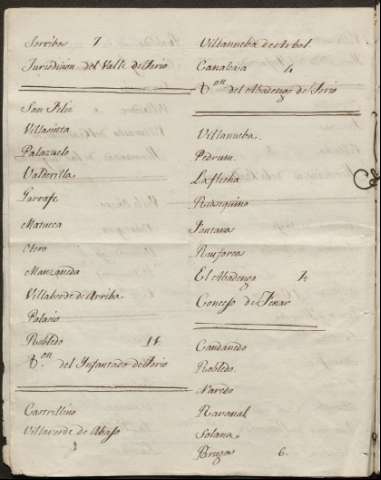 Sorriba 7
Jurisdicion del Valle de Torio
San Feliz
Villasinta
Palazuelo
Valderilla
Garrafe
Matueca
Otero
Manzaneda
Villaberde de Arriba
Palacio
Robledo 11
del Infantado de Torio
Castrillino
Villaverde de Abaxo
Villanueba de Arbol
Canaleja 4
del Abadengo de Torio
Villanueba
Pedrun
La flecha
Fontano
El Abadengo 4
Concejo de Fenar
Candanedo
Robledo
Naredo
Rabanal
Solana
Brugos 6